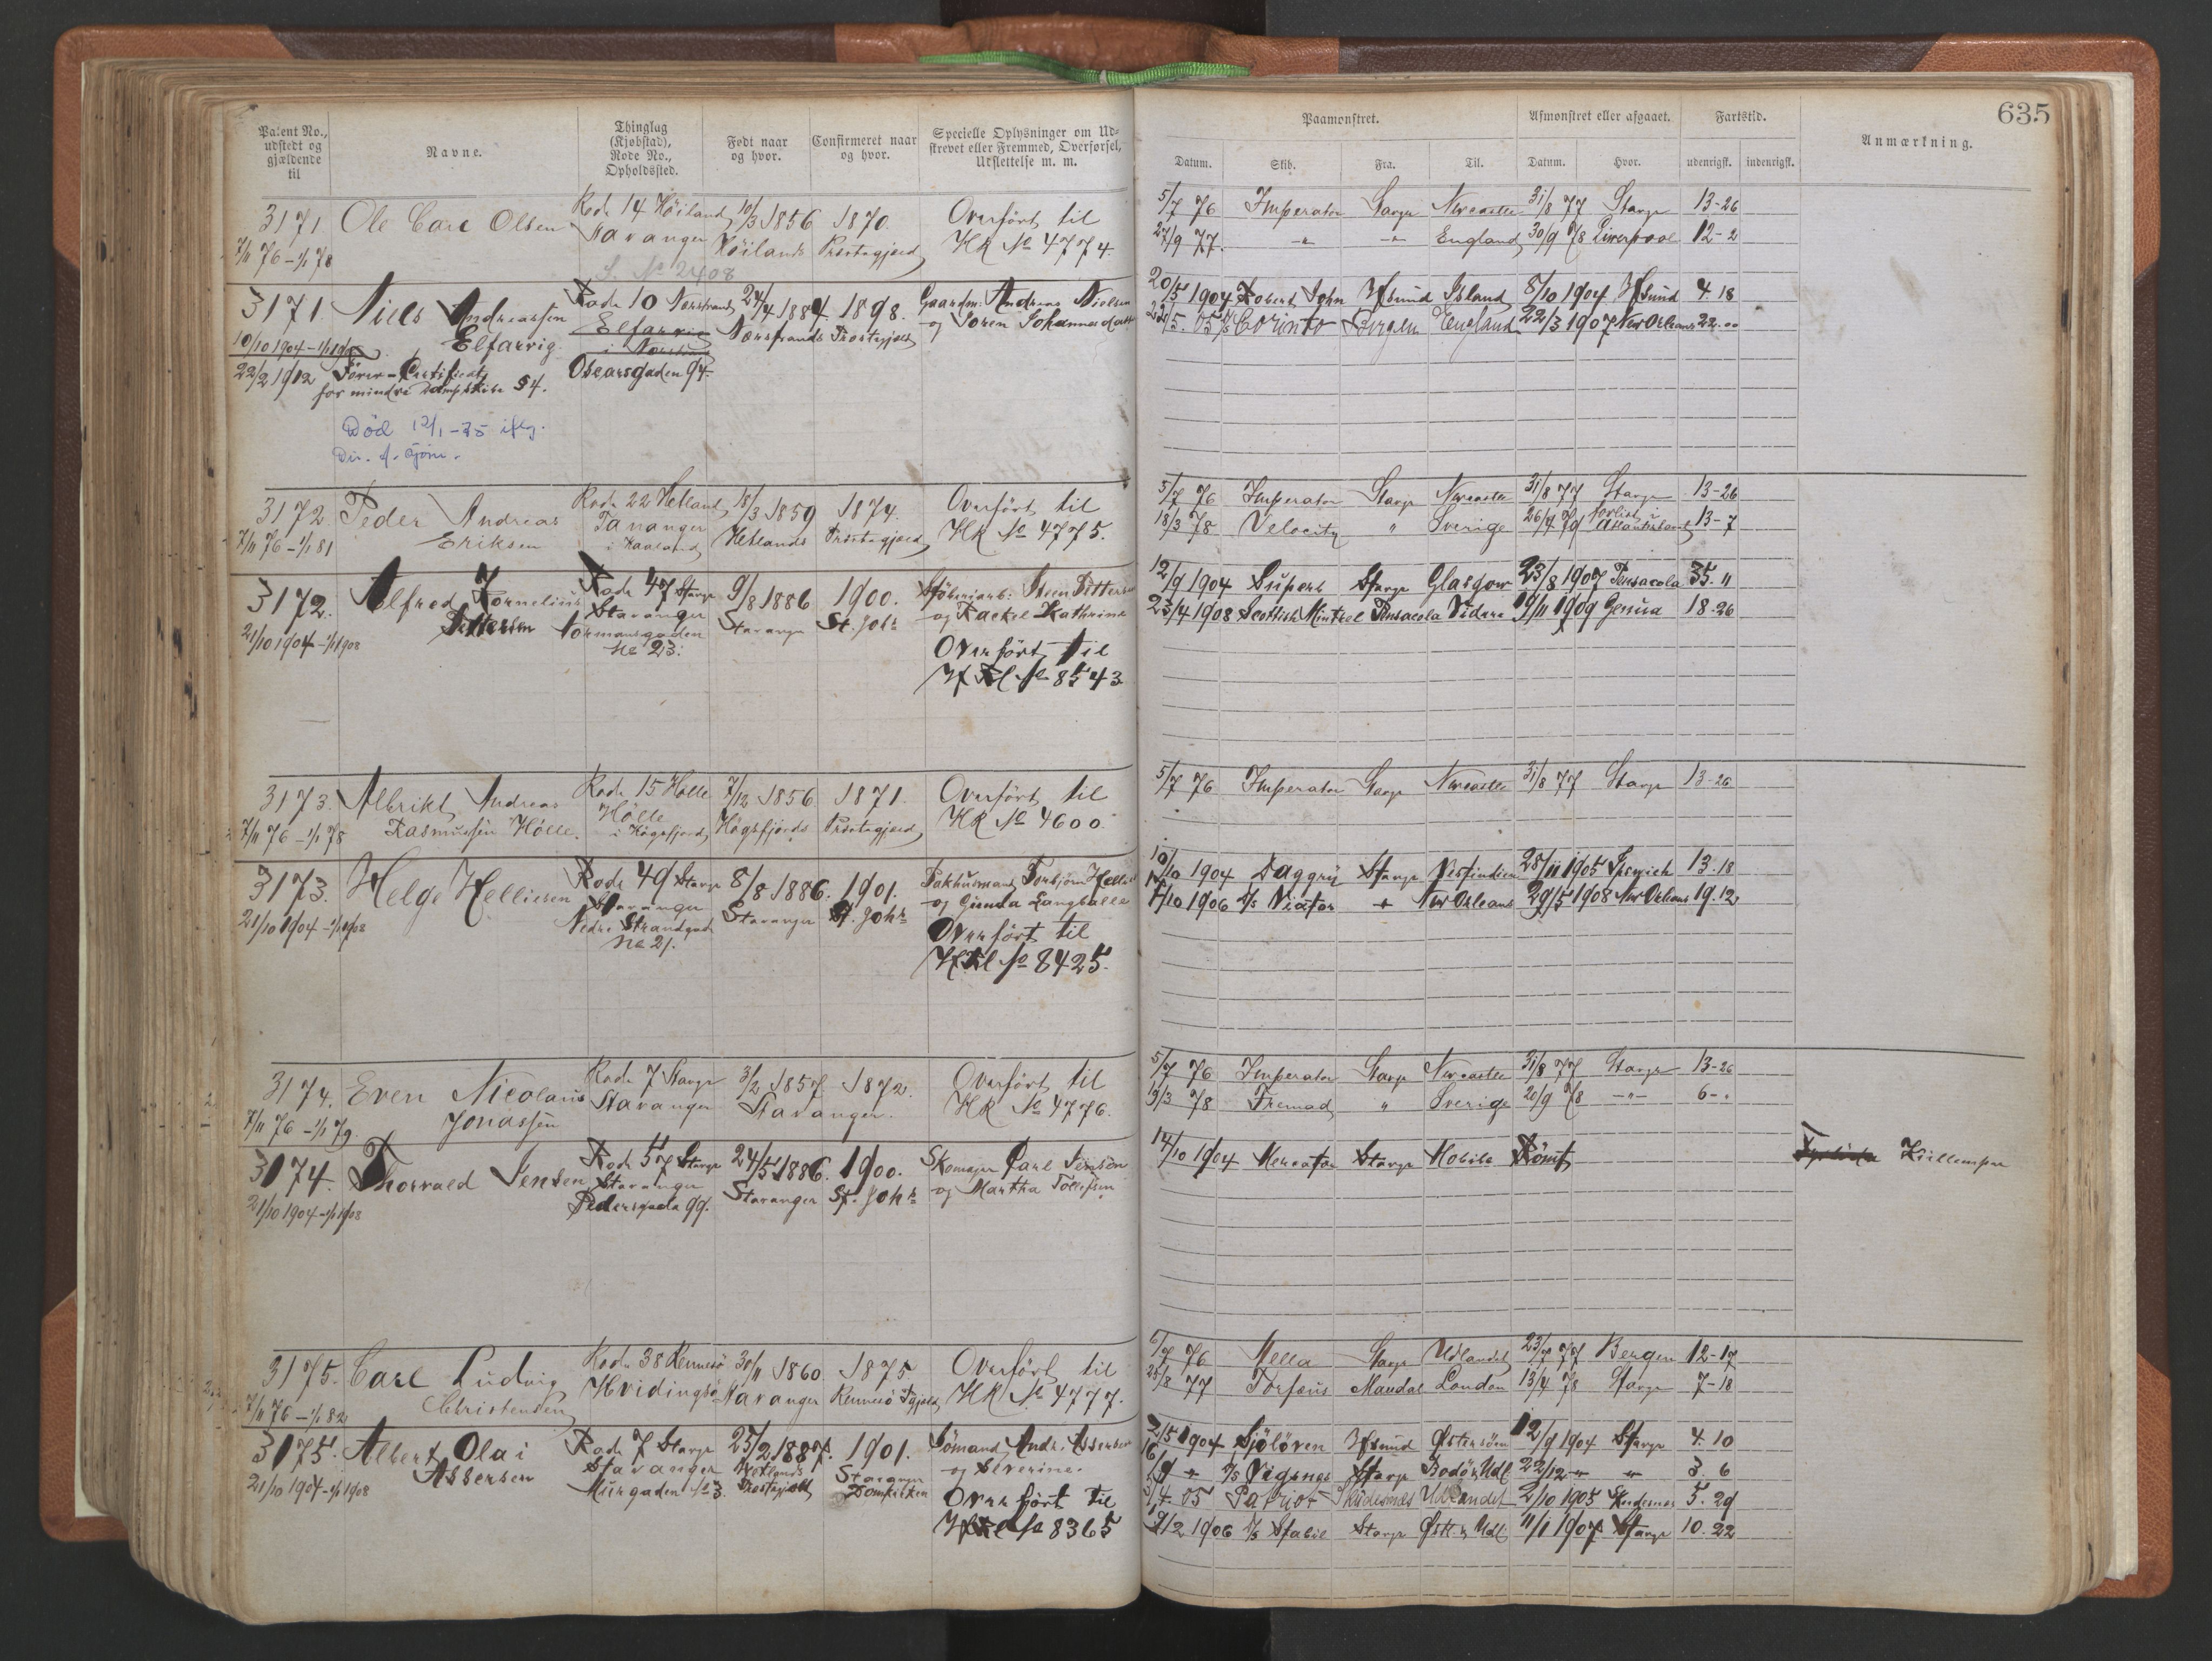 635
Patent No., udstedt og gjældende til
Navne.
Thinglag (Kjøbstad), Rode No., Opholdssted.
Født naar og hvor.
Confirmeret naar og hvor.
Specielle Oplysninger om Udstrevet eller Fremmed, Overførsel, Udslettelse m. m.
Paamønstret.
Afmønstret eller afgaaet.
Fartstid.
Anmærkning.
Datum. Skib. Fra. Til. Datum. Hvor. udenrigsk. indenrigsk.
3171. Ole Carl Olsen Rode 14 Höiland 10/3 1856 1870. Overført til
7/11 76 - 1/1 78 Stavanger Höilands Præstegjæld HR No 4774.
S. No 2408
5/7 76 Imperator Stavgr Newcastle 31/8 77 Stavgr 13-26
27/9 77. -"- -"- England 30/9 78 Liverpool 12-2
3171. Niels Andreassen Rode 10 Nerstrand 24/4 1884. 1898. Gaardm. Andreas Nielsen
10/10 1904 - Elfarvig Elfarvig i Nerstrand Nerstrands Præstegjæld og Soren Johannesdatter
22/2 1912 Fører-Certificat Oscarsgaden 94.
for mindre Dampskibe §4.
Död 12/1-35 iflg.
Dir. f. Sjöm.
20/5 1904 Robert John Hfsund Island 8/10 1904 Hfsund 4. 18
05 D/S Corinto Bergen England 22/3 1907 New Orleans 22. 00
3172. Peder Andreas Rode 22 Hetland 18/3 1859 1874. Overført til
7/11 76 - 1/1 81 Eriksen Tananger i Haaland Hetlands Præstegjæld HR No 4775.
5/7 76 Imperator Stavgr Newcastle 31/8 77 Stavgr 13-26
18/3 78 Velocity " Sverige 26/4 79 forlist i Atlanterhavet 13-7
3172. Alfred Kornelius Rode 47 Stavgr 9/8 1886 1900.
21/10 1904 - 1/1 1908 Pettersen Stavanger Stavanger St. Johs og Rackel Kathrine
Normansgaden No 23.
Overført til
HRl No 8543
12/9 1904 Superb Stavgr Glasgow 23/8 1907 Pensacola 35. 11
23/4 1908 Scottish Minstrel Pensacola Videre 19/11 1909 Genua 18-26
3173. Albrikt Andreas Rode 15 Hölle 7/12 1856. 1871. Overført til
7/11 76 - 1/1 78 Rasmussen Hölle. Hölle i Högsfjord Högsfjords Præstegjæld HR No 4600.
5/7 76 Imperator Stavgr Newcastle 31/8 77 Stavgr 13-26
3173. Helge Helliesen Rode 49 Stavgr 8/8 1886. 1901. Pakhusmand Torbjörn Hellie
21/10 1904 - 1/1 1908 Stavanger Stavanger St. Johs og Gunda Langballe
Nedre Strandgade No 21.
Overført til
HRl No 8425.
10/10 1904 Daggry Stavgr Vestindien 28/11 1905 Ipswich 13. 18
1906 D/S Viator " New Orleans 29/5 1908 New Orleans 19. 12
3174. Even Nicolaus Rode 7 Stavgr 3/2 1857 1872. Overført til
7/11 76 - 1/1 79. Jonassen Stavanger Stavanger. HR No 4776.
5/7 76 Imperator Stavgr Newcastle 31/8 77 Stavgr 13-26
9/3 78 Fremad " Sverige 20/9 78 -"- 6-.
3174. Thorvald Jensen Rode 57 Stavgr 24/5 1886. 1900. Skomager Carl Jensen
21/10 1904 - 1/1 1908 Stavanger Stavanger St. Johs og Martha Tollefsen
Pedersgade 99.
14/10 1904 Mercator Stavgr Mobile Römt
3175. Carl Ludvig Rode 38 Rennesö 30/11 1860 1875. Overført til
7/11 76 - 1/1 82 Christensen Hvidingsö Stavanger Rennesö Pgjæld HR No 4777.
6/7 76 Mella Stavgr Udlandet 23/7 77 Bergen 12-17
25/8 77 Torfæus Mandal London 13/4 78 Stavgr 7-18
3175. Albert Olai Rode 7 Stavgr 25/2 1887. 1901. Sömand Andr. Assersen
21/10 1904 - 1/1 1908 Assersen Stavanger Hetlands Præstegjæld Stavanger Domkirken og Severine.
Murgaden No 3.
Overført til
HRl No 8365
2/5 1904 Sjölöven Hfsund Østersöen 12/9 1904 Stavgr 4. 10
D/S Vigsnes Stavgr Bodö & Udl 22/12 " " 3. 6
05 Patriot Skudesnes Udlandet 2/10 1905 Skudesnes 5. 29
1906 D/S Stabil Stavgr Østl. & Udl 11/1 1907 Stavgr 10. 22